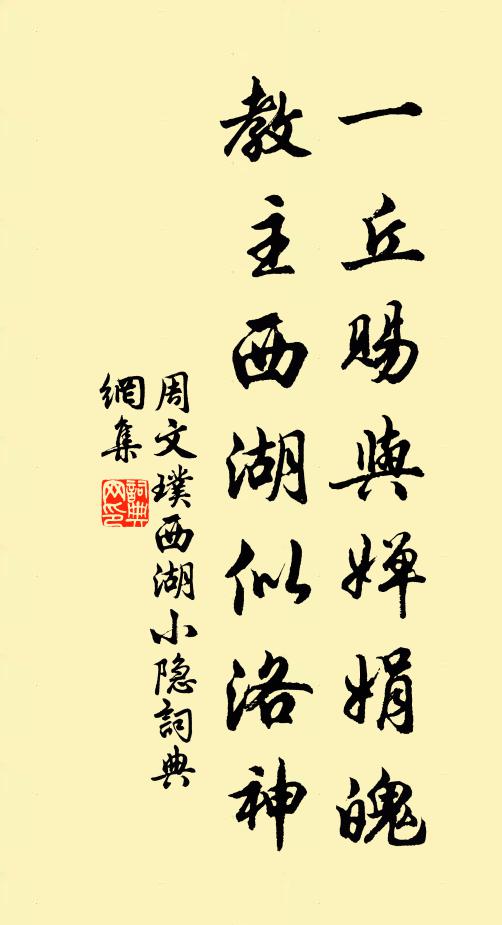 一丘賜與嬋娟魄
教主西湖似洛神
周文璞西湖小隐詞典
網集
詞典网印